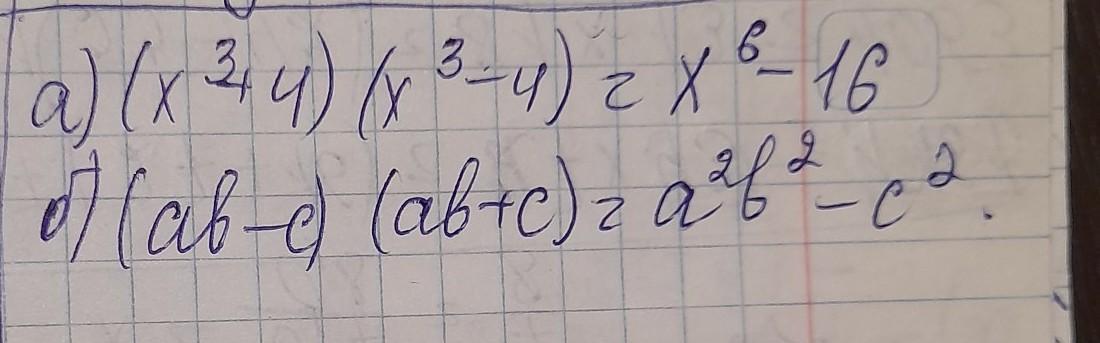 а) (x³+4) (x³-4) = x⁶-16
б) (ab-c) (ab+c) = a²b²-c².